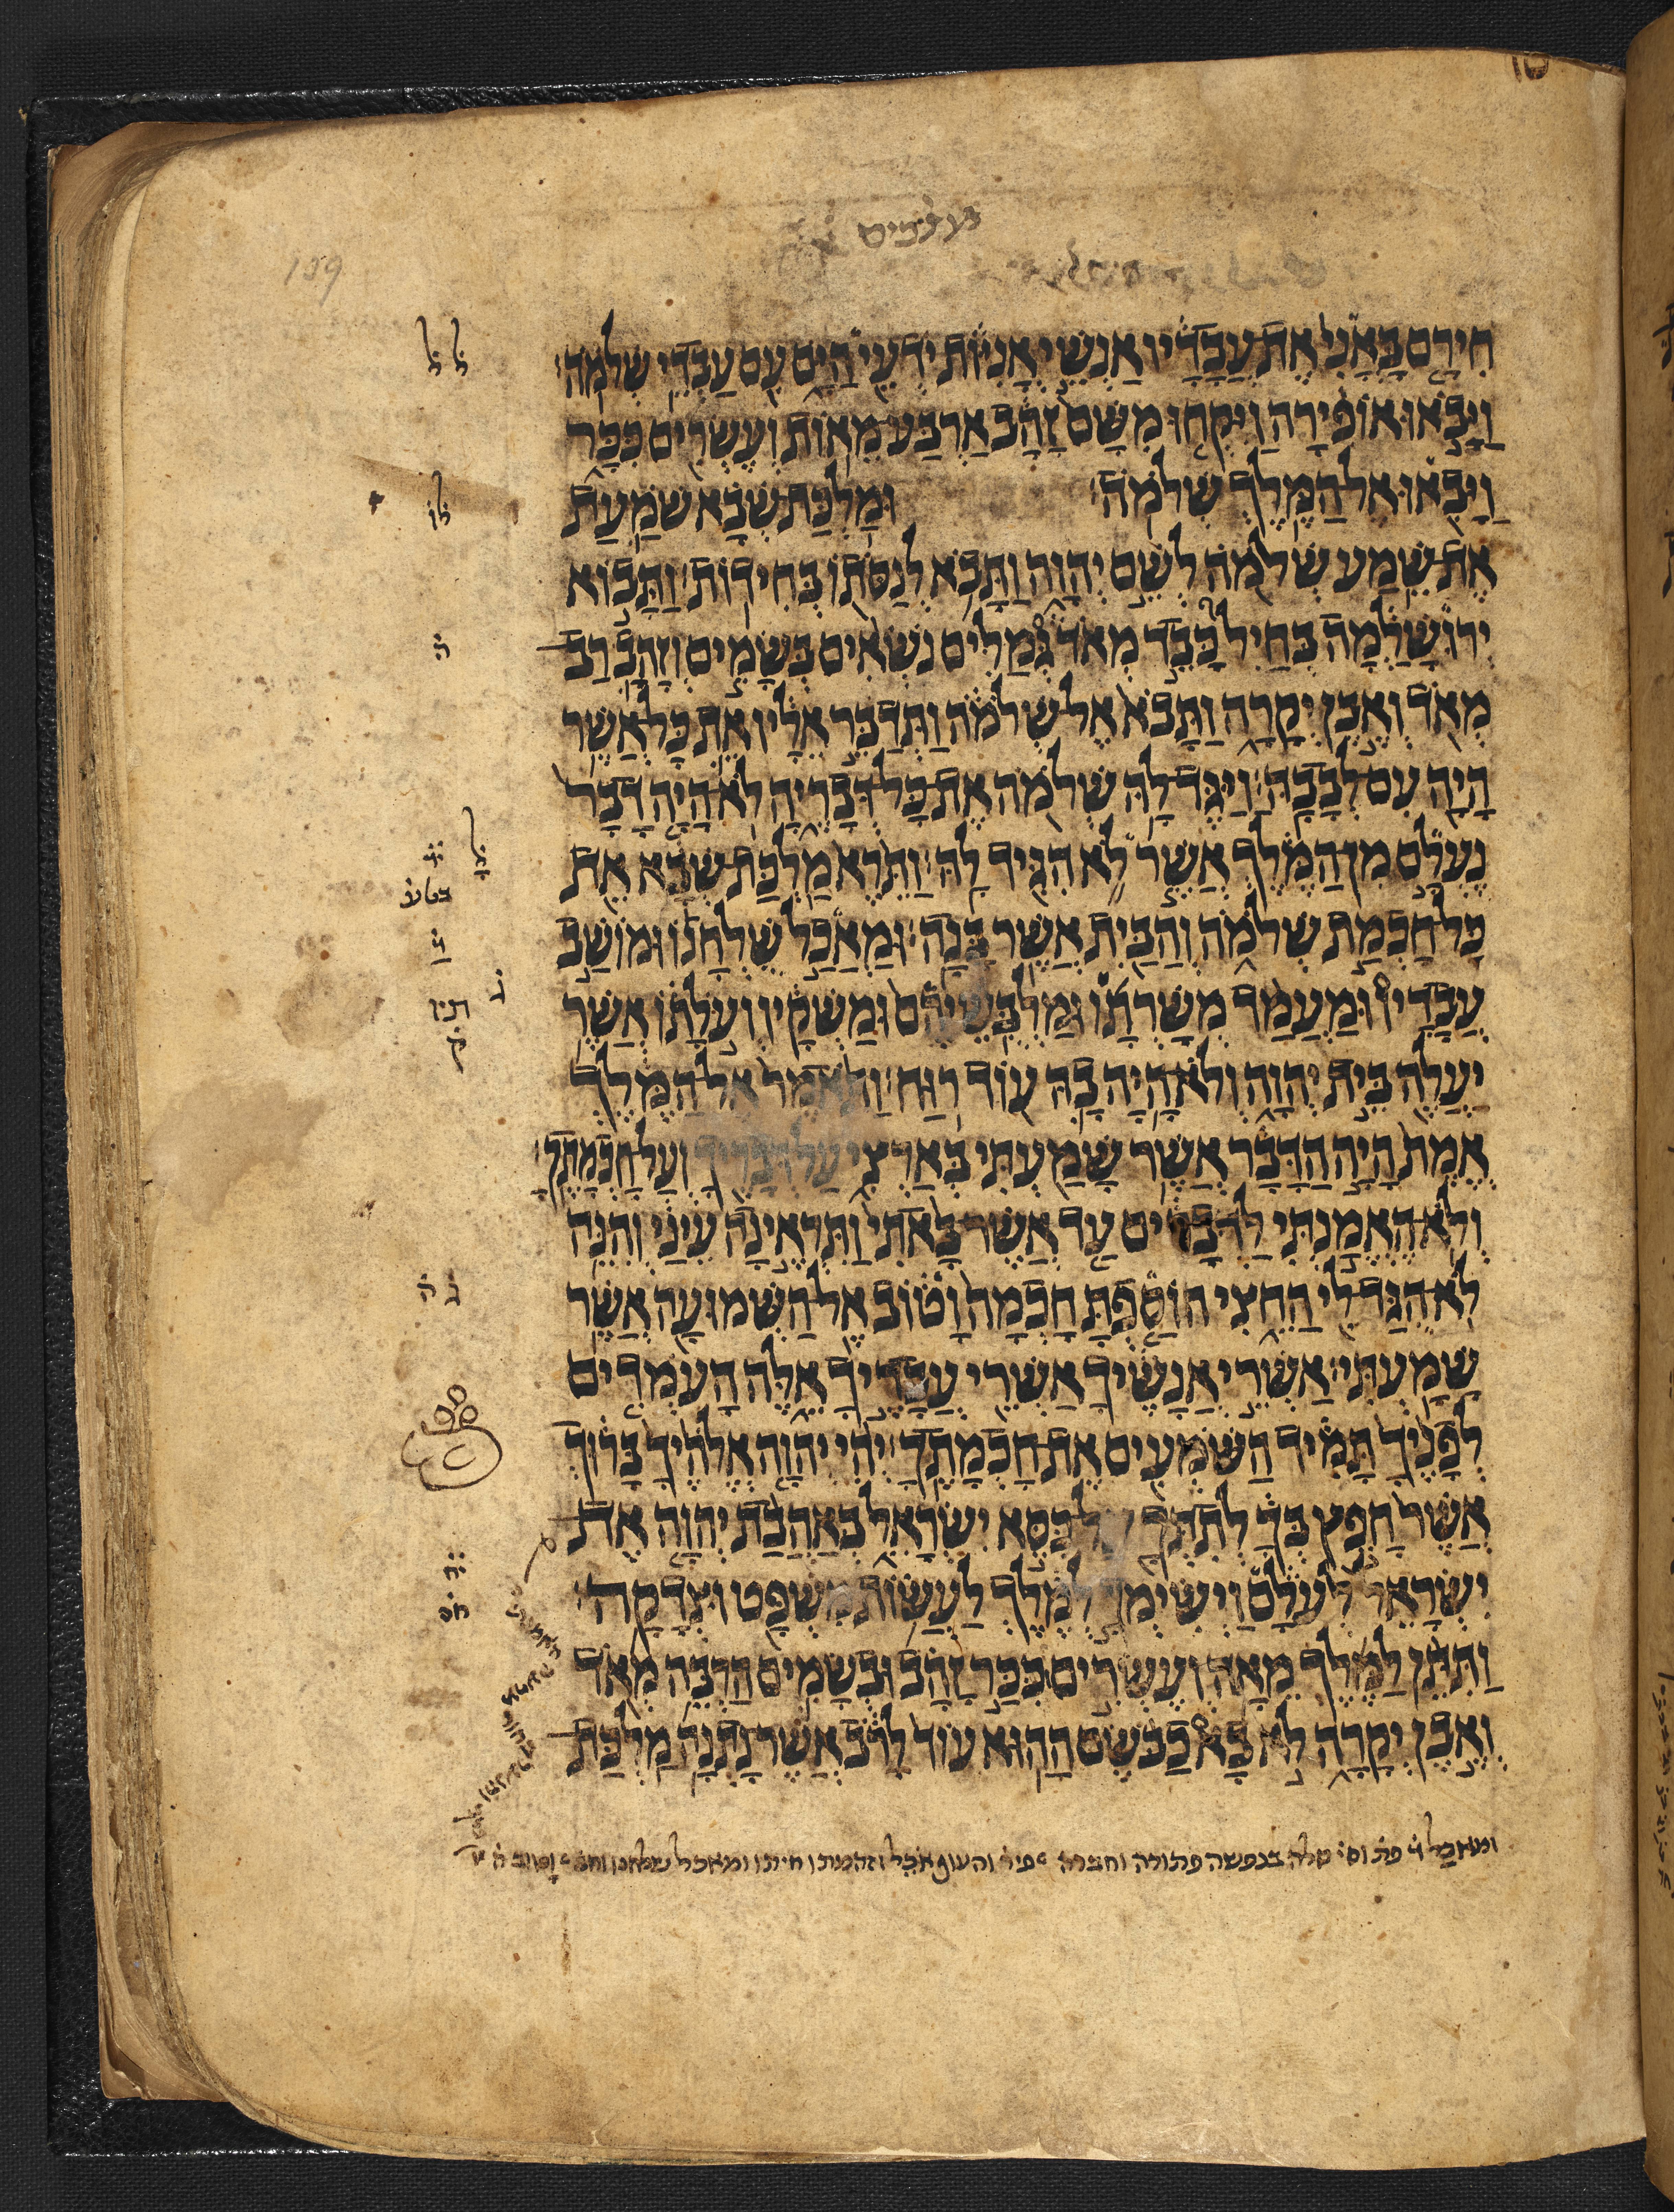 מלכים
159
חִירָם בָּאֳנִי אֶת עֲבָדָיו אַנְשֵׁי אֳנִיּוֹת יֹדְעֵי הַיָּם עִם עַבְדֵי שְׁלֹמֹה׃
וַיָּבֹאוּ אוֹפִירָה וַיִּקְחוּ מִשָּׁם זָהָב אַרְבַּע מֵאוֹת וְעֶשְׂרִים כִּכָּר
וַיָּבִאוּ אֶל הַמֶּלֶךְ שְׁלֹמֹה׃ וּמַלְכַּת שְׁבָא שֹׁמַעַת
אֶת שֵׁמַע שְׁלֹמֹה לְשֵׁם יְהוָה וַתָּבֹא לְנַסֹּתוֹ בְּחִידוֹת׃ וַתָּבוֹא
יְרוּשָׁלְַמָה בְּחַיִל כָּבֵד מְאֹד גְּמַלִּים נֹשְׂאִים בְּשָׂמִים וְזָהָב רַב
מְאֹד וְאֶבֶן יְקָרָה וַתָּבֹא אֶל שְׁלֹמֹה וַתְּדַבֵּר אֵלָיו אֵת כָּל אֲשֶׁר
הָיָה עִם לְבָבָהּ׃ וַיַּגֶּד לָהּ שְׁלֹמֹה אֶת כָּל דְּבָרֶיהָ לֹא הָיָה דָבָר
נֶעְלָם מִן הַמֶּלֶךְ אֲשֶׁר לֹא הִגִּיד לָהּ׃ וַתֵּרֶא מַלְכַּת שְׁבָא אֵת
כָּל חָכְמַת שְׁלֹמֹה וְהַבַּיִת אֲשֶׁר בָּנָה׃ וּמַאֲכַל שֻׁלְחָנוֹ וּמוֹשַׁב
עֲבָדָיו וּמַעֲמַד מְשָׁרְתָו וּמַלְבֻּשֵׁיהֶם וּמַשְׁקָיו וְעֹלָתוֹ אֲשֶׁר
יַעֲלֶה בֵּית יְהוָה וְלֹא הָיָה בָהּ עוֹד רוּחַ׃ וַתֹּאמֶר אֶל הַמֶּלֶךְ
אֱמֶת הָיָה הַדָּבָר אֲשֶׁר שָׁמַעְתִּי בְּאַרְצִי עַל דְּבָרֶיךָ וְעַל חָכְמָתֶךָ׃
וְלֹא הֶאֱמַנְתִּי לַדְּבָרִים עַד אֲשֶׁר בָּאתִי וַתִּרְאֶינָה עֵינַי וְהִנֵּה
לֹא הֻגַּד לִי הַחֵצִי הוֹסַפְתָּ חָכְמָה וָטוֹב אֶל הַשְּׁמוּעָה אֲשֶׁר
שָׁמָעְתִּי׃ אַשְׁרֵי אֲנָשֶׁיךָ אַשְׁרֵי עֲבָדֶיךָ אֵלֶּה הָעֹמְדִים
לְפָנֶיךָ תָּמִיד הַשֹּׁמְעִים אֶת חָכְמָתֶךָ׃ יְהִי יְהוָה אֱלֹהֶיךָ בָּרוּךְ
אֲשֶׁר חָפֵץ בְּךָ לְתִתְּךָ עַל כִּסֵּא יִשְׂרָאֵל בְּאַהֲבַת יְהוָה אֶת
יִשְׂרָאֵל לְעֹלָם וַיְשִׂימְךָ לְמֶלֶךְ לַעֲשׂוֹת מִשְׁפָּט וּצְדָקָה׃
וַתִּתֵּן לַמֶּלֶךְ מֵאָה וְעֶשְׂרִים כִּכַּר זָהָב וּבְשָׂמִים הַרְבֵּה מְאֹד
וְאֶבֶן יְקָרָה לֹא בָא כַבֹּשֶׂם הַהוּא עוֹד לָרֹב אֲשֶׁר נָתְנָה מַלְכַּת